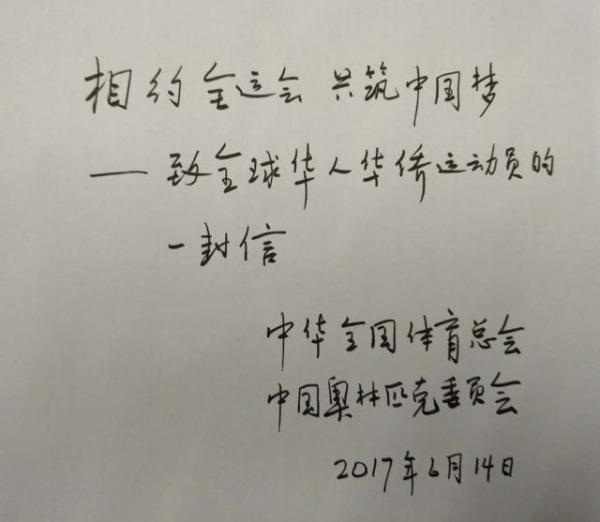 相约全运会 共筑中国梦
——致全球华人华侨运动员的
一封信
中华全国体育总会
中国奥林匹克委员会
2017年6月14日